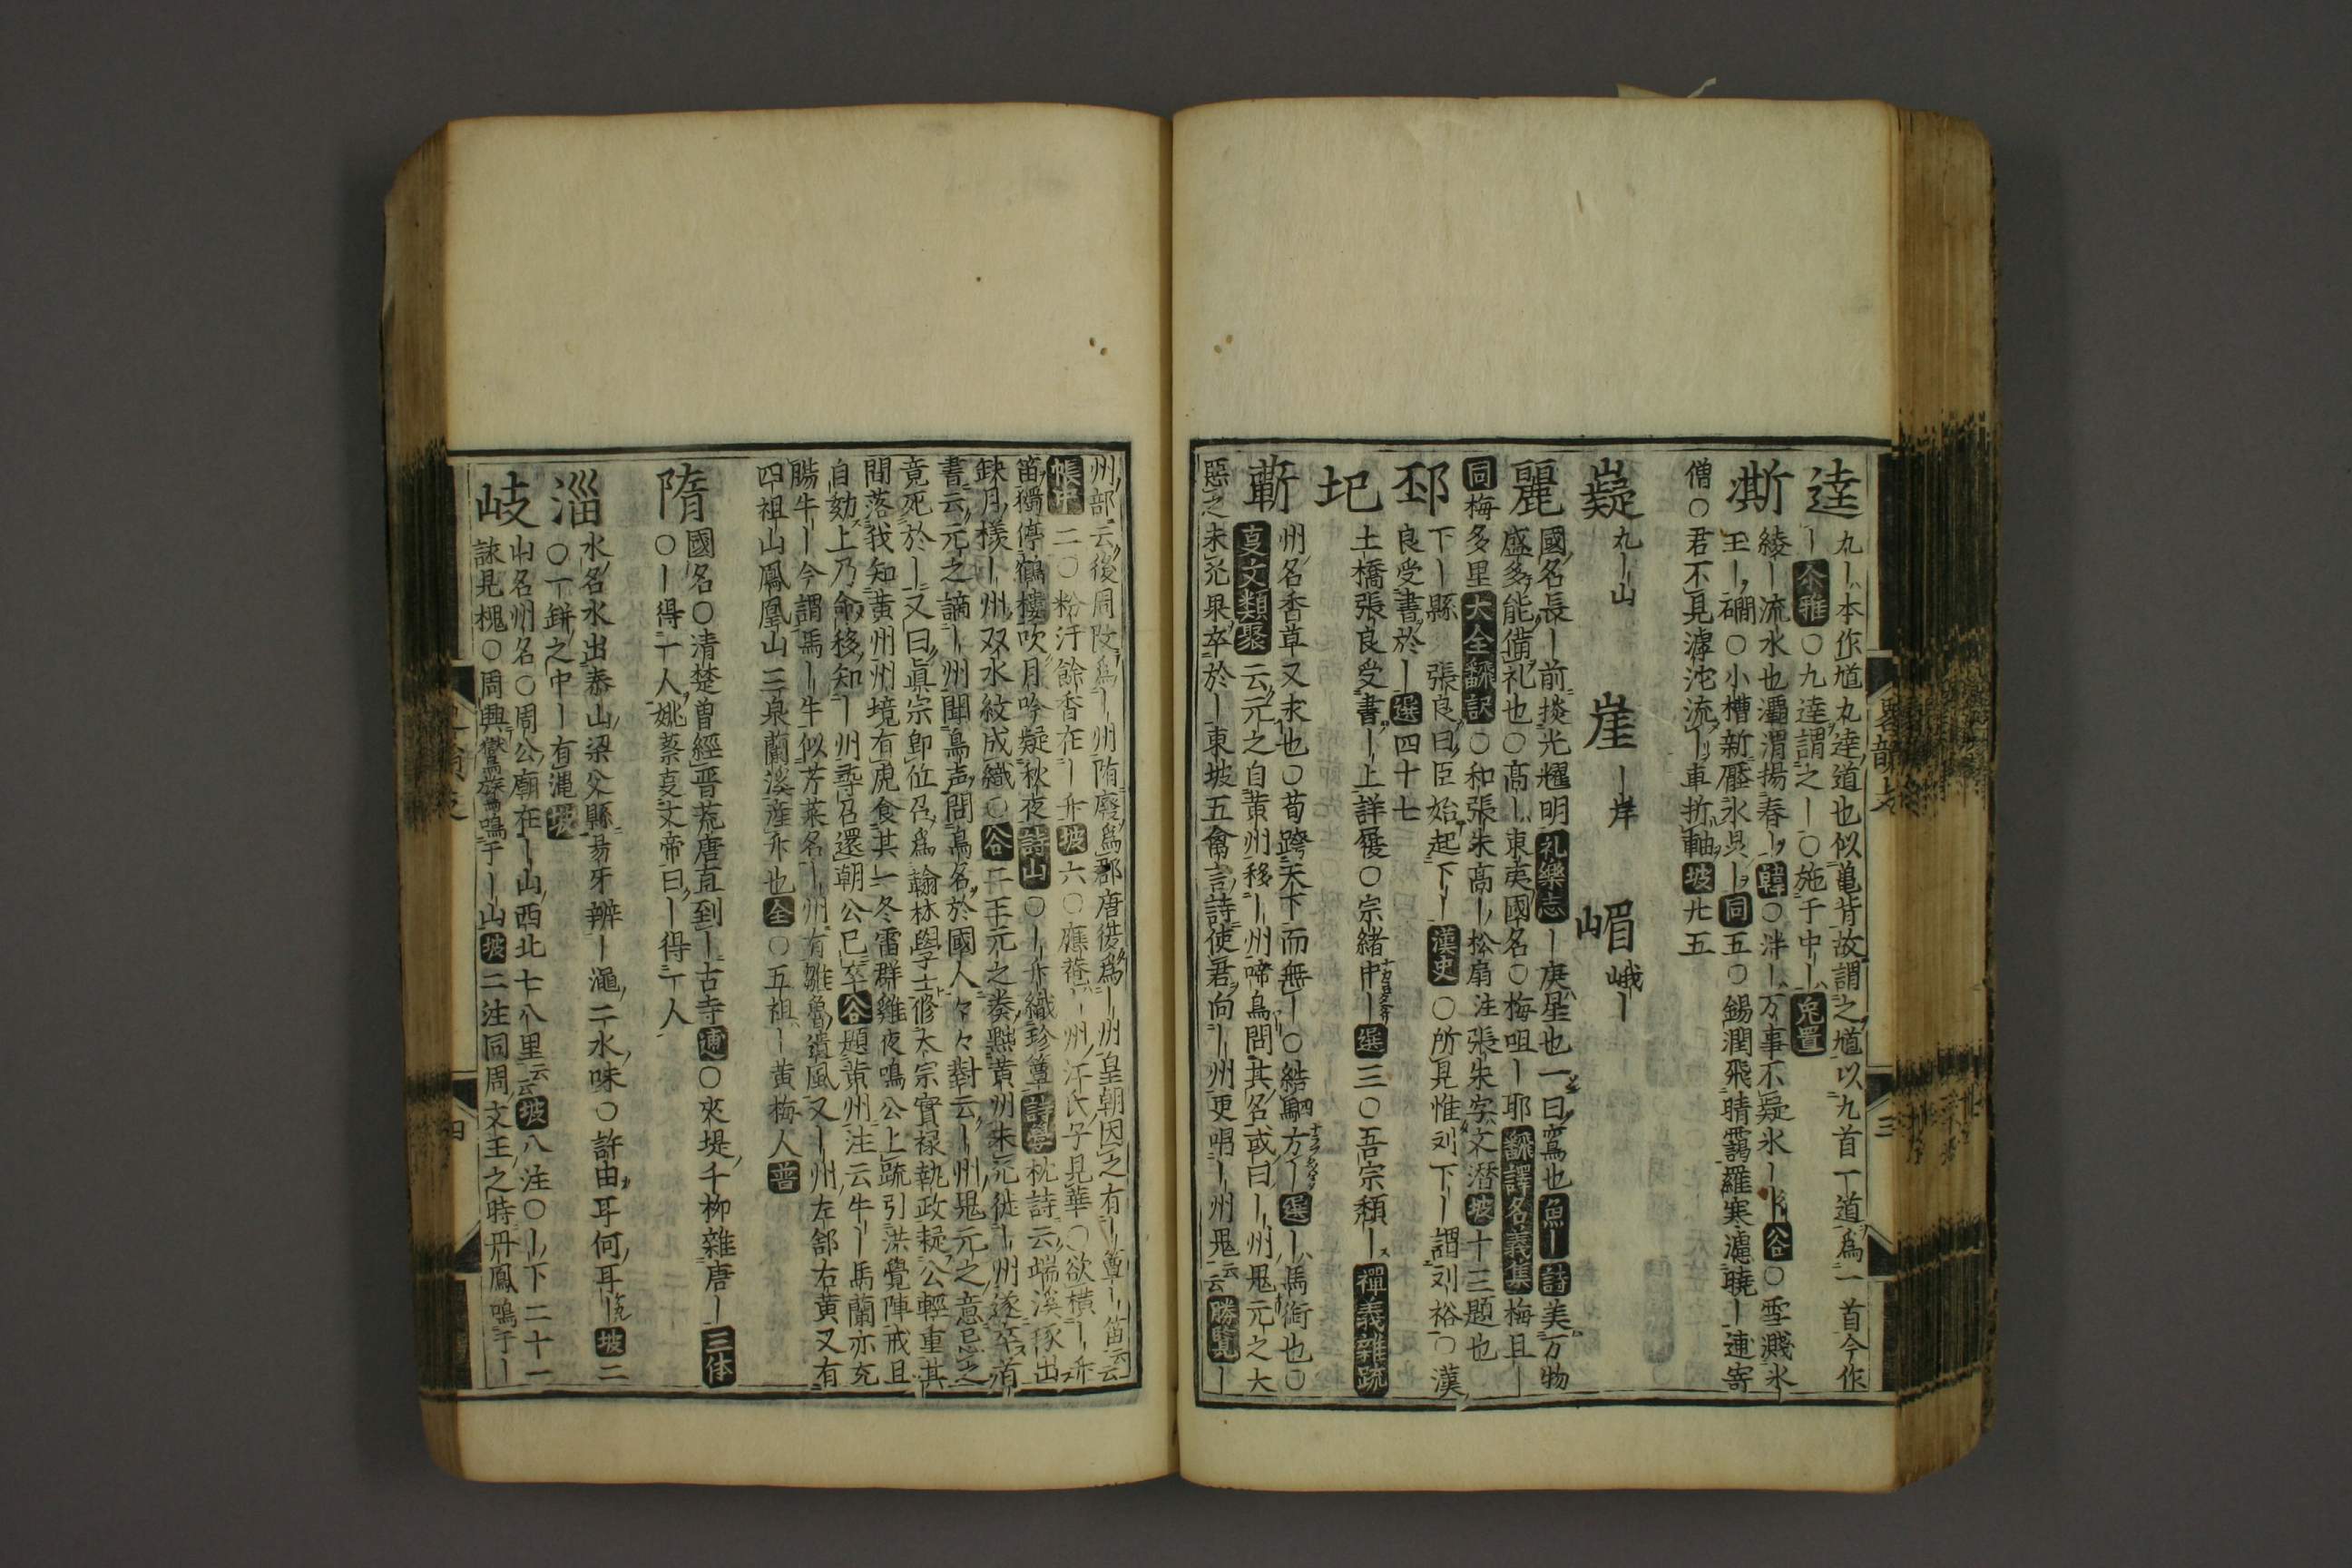 逵 九｜本作馗九逵道也似亀背故謂之馗以九首一道爲一首今作
｜尒雅〇九逵謂之｜〇施于中｜兔罝
凘 綾｜流水也灞渭揚春｜韓〇泮｜万事不疑氷｜谷〇雪濺氷
王｜磵〇小槽新壓氷具｜同五〇錫潤飛晴靄羅寒濾曉｜連寄
僧〇君不見滹沱流｜車折軸坡廾五
嶷 九｜山
崖 ｜岸
嵋 峨｜
麗 國名長｜前掞光耀明礼樂志｜庚星也一曰寫也魚｜詩美万物
盛多能備礼也〇高｜東夷國名〇梅咀｜耶飜譯名義集梅且｜
同梅多里大全飜訳〇和張朱高｜松扇注張朱字文潜坡十三題也
邳 下｜縣張良曰臣始起下｜漢史〇所見惟刘下｜謂刘裕〇漢
良受書於｜選四十七
圯 土橋張良受書｜上詳履〇宗緒中｜選三〇吾宗頽｜禪義雜疏
蘄 州名香草又求也〇荀跨天下而無｜〇結駟方｜選｜馬銜也〇
夏文類聚云元之自黄州移｜州啼鳥問其名或曰｜州鬼元之大
惡之未元果卒於｜東坡五禽言詩使君向｜州更唱｜州鬼云勝覧｜
州部云後周改爲｜州隋廢爲郡唐復爲｜州皇朝因之有｜簟｜笛云
帳中二〇粉汗餘香在｜竹坡六〇應襍｜州汗氏子見華〇欲横｜竹
笛獨停鶴樓吹月吟凝秋夜詩山〇｜竹織珍簟詩學枕詩云端溪琢出
缺月樣｜州双水紋成織〇谷二王元之奏黜黄州未元徙｜州遂卒首
書云元之謫｜州聞鳥声問鳥名於國人々々對云｜州鬼元之意忌之
竟死於｜又曰眞宗即位召爲翰林學士修大宗實禄執政疑公輕重其
間落我知黄州州境有虎食其一冬雷群雞夜鳴公上疏引洪覺陣戒且
自劾上乃命移知｜州尋召還朝公已卒谷題黄州注云牛｜馬蘭亦充
腸牛｜今謂馬｜牛似芳菜名｜州有雛魯遺風又｜州左郃右黄又有
四祖山鳳凰山三泉蘭溪産竹也全〇五祖｜黄梅人普
隋 國名〇清楚曽經晋荒唐直到｜古寺連〇夾堤千柳雜唐｜三体
〇｜得一人姚蔡夏文帝曰｜得一人
淄 水名水出泰山梁父縣易牙辨｜澠二水味〇許由耳何耳｜坡二
〇一缾之中｜有澠坡
岐 山名州名〇周公廟在｜山西北七八里云坡八注〇｜下二十一
詠見槐〇周興鸑鷟鳴于｜山坡二注同周文王之時丹鳳鳴于｜